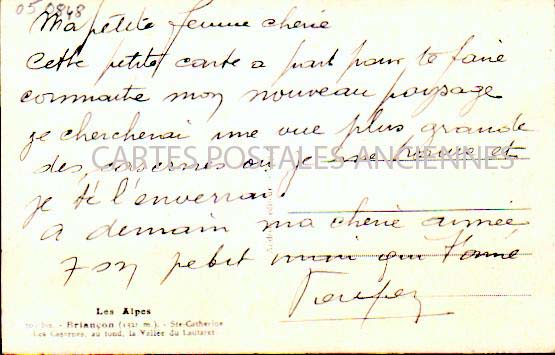 05 0848
Ma petite femme chérie
Cette petite carte a part pour te faire
connaitre mon nouveau paysage
je chercherai une vue plus grande
des casernes ou je me trouve et
je te l'enverrai.
CARTES POSTALES ANCIENNES
a demain ma chérie aimée
ton petit mari qui t'aime
Les Alpes
Briançon (1321 m.). - Ste-Catherine
Les Casernes, au fond, la Vallée du Lautaret